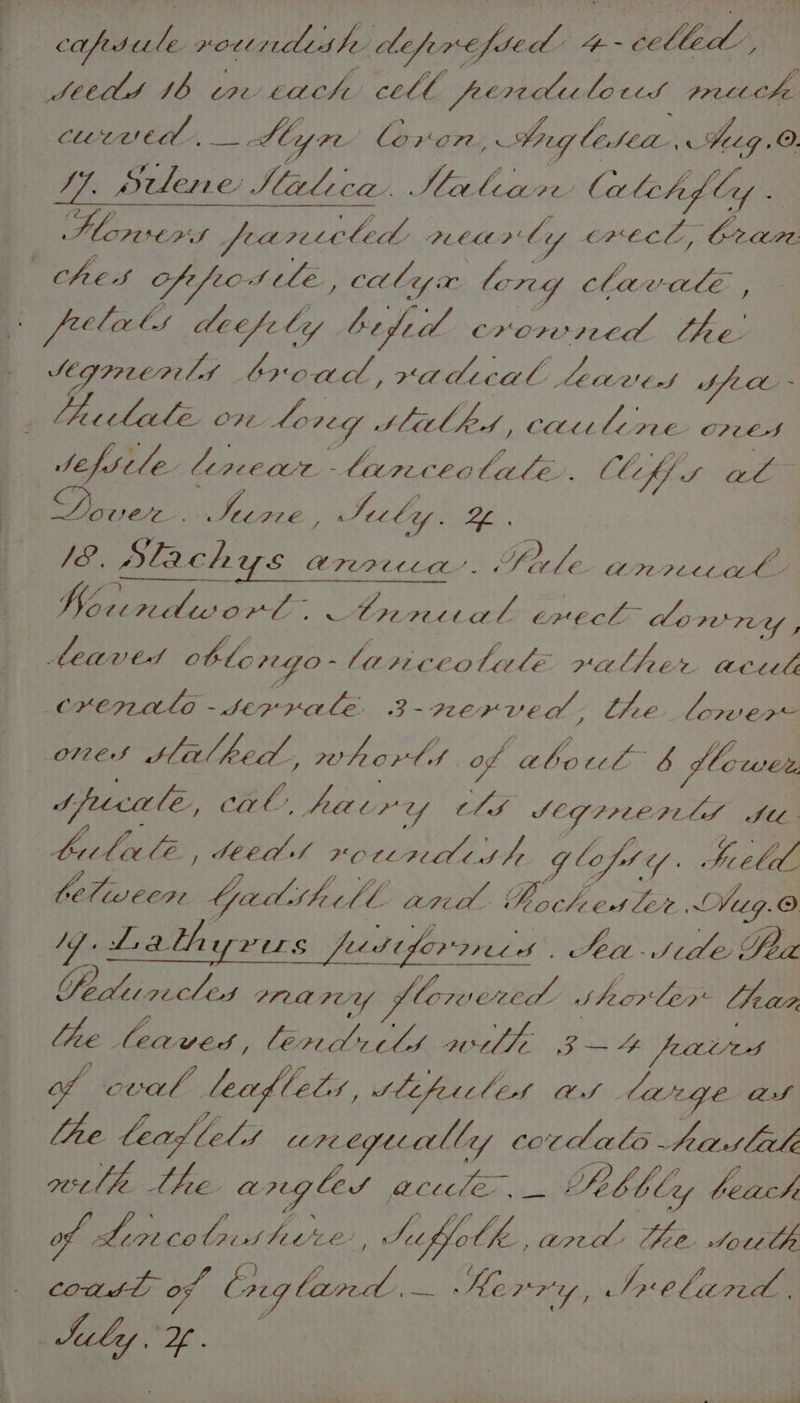 capsule roundish depressed 4-celled,
seeds 16 in each cell pendulous much
curved. — Llyn Coron, Anglesea. Aug. ☉.
17. Silene Italica. Italian Catchfly.
Flowers panicled nearly erect, bran
ches opposite, calyx long clavate,
petals deeply bifid crowned the
segments broad, radical leaves spa-
thulate on long stalks, cauline ones
sessile linear-lanceolate. Cliffs at
Dover. June, July. ♃.
18. Stachys annua. Pale annual
Woundwort. Annual erect downy,
leaves oblongo-lanceolate rather acute
crenato-serrate 3-nerved, the lower
ones stalked, whorls of about 6 flower
spicate, cal. hairy its segments su
bulate, seeds roundish glossy. Field
between Gadshill and Rochester. Aug. ☉
19. Lathyrus pisiformis. Sea-side Pea
Peduncles many flowered shorter than
the leaves, tendrils with 3—4 pairs
of oval leaflets, stipules as large as
the leaflets unequally cordato-hastate
with the angles acute. — Pebbly beach
of Lincolnshire, Suffolk, and the south
coast of England. — Kerry, Ireland.
July. ♃.